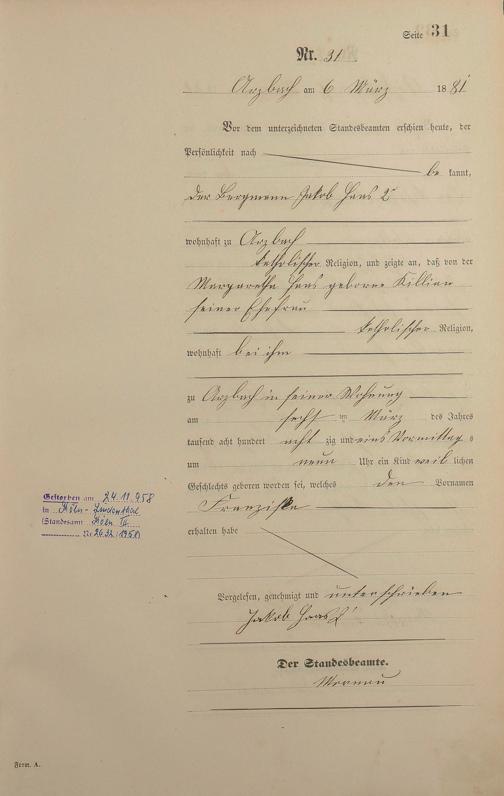 Seite 31
Nr. 31
Arzbach am 6 März 1881
Vor dem unterzeichneten Standesbeamten erschien heute, der
Persönlichkeit nach
be kannt,
der Bergmann Jakob Haas 2r
wohnhaft zu Arzbach
katholischer Religion, und zeigte an, daß von der
Margaretha Haas geborne Killian
seiner Ehefrau
katholischer Religion,
wohnhaft bei ihm
zu Arzbach in seiner Wohnung
am sechsten März des Jahres
tausend acht hundert acht zig und eins Vormittag s
um neun Uhr ein Kind weib lichen
Geschlechts geboren worden sei, welches den Vornamen
Franziska
erhalten habe
Vorgelesen, genehmigt und unterschrieben
Jakob Haas 2r
Der Standesbeamte.
Gestorben am 24.11.1958
in Köln-Lindenthal
(Standesamt Köln
Nr. 2632/1958)
Form. A.